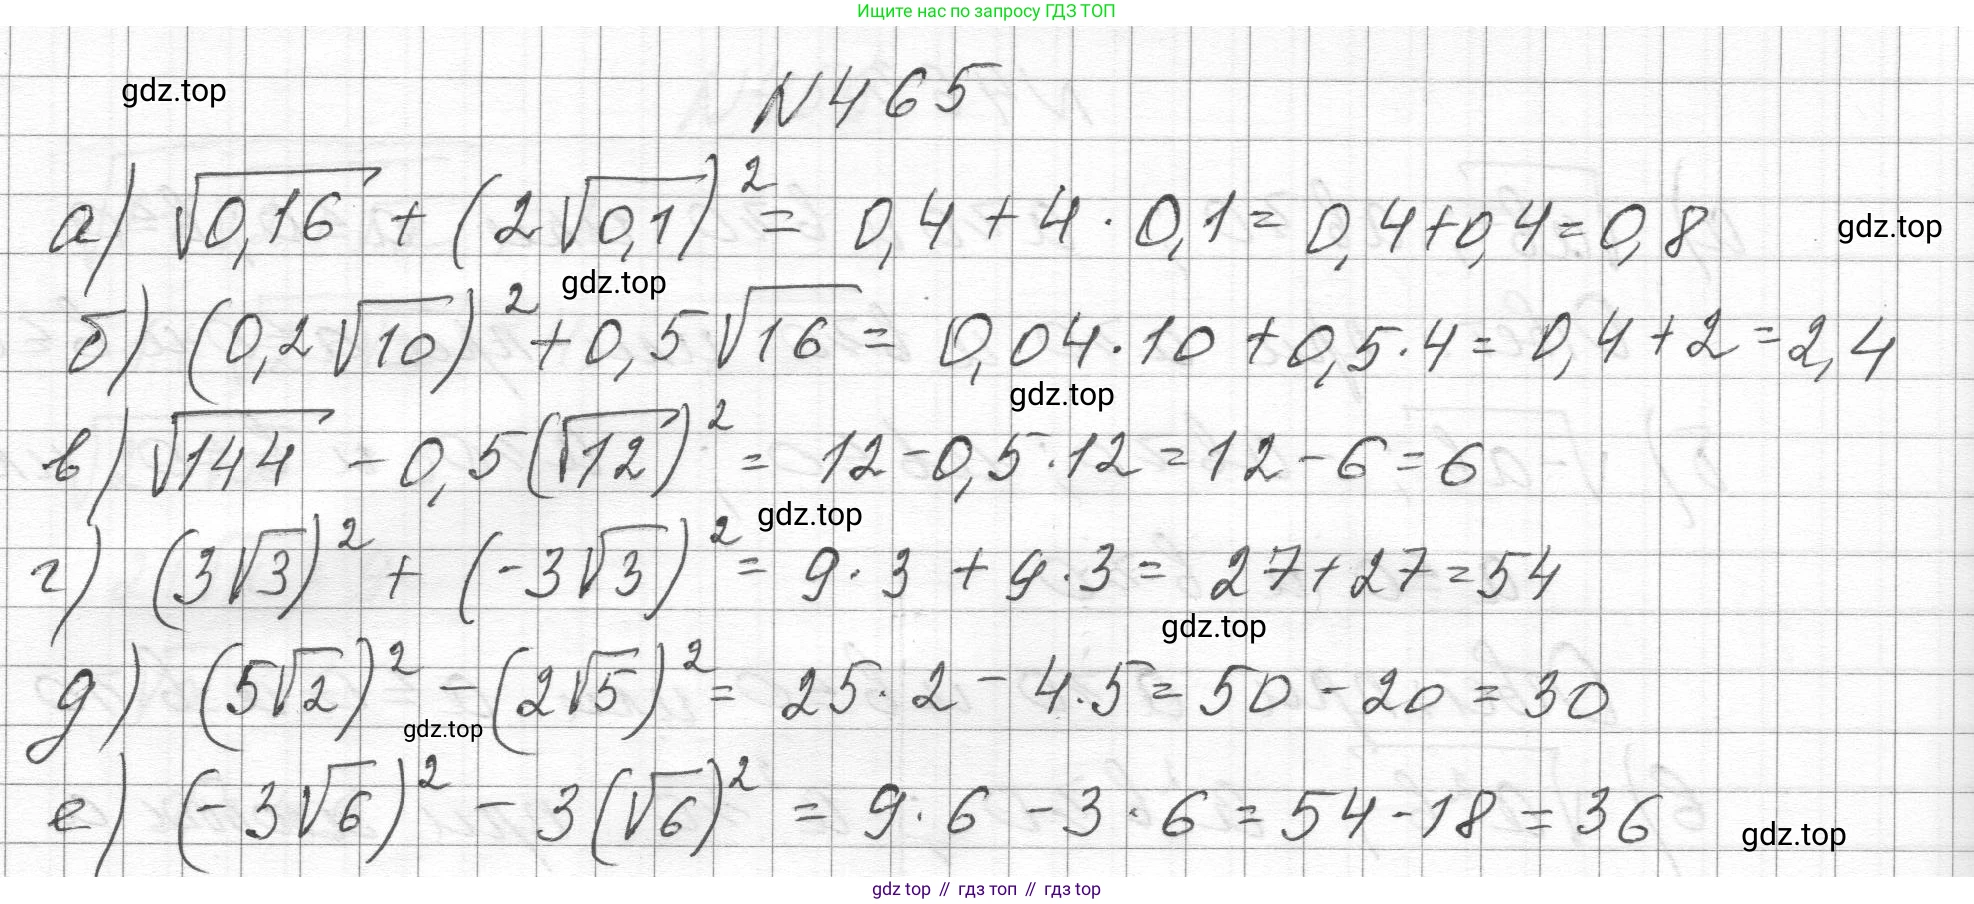 Ищите нас по запросу ГДЗ ТОП
gdz.top
N465
а) √0,16 + (2√0,1)² = 0,4 + 4 · 0,1 = 0,4 + 0,4 = 0,8
gdz.top
gdz.top
б) (0,2√10)² + 0,5√16 = 0,04 · 10 + 0,5 · 4 = 0,4 + 2 = 2,4
gdz.top
в) √144 - 0,5(√12)² = 12 - 0,5 · 12 = 12 - 6 = 6
gdz.top
г) (3√3)² + (-3√3)² = 9 · 3 + 9 · 3 = 27 + 27 = 54
gdz.top
д) (5√2)² - (2√5)² = 25 · 2 - 4 · 5 = 50 - 20 = 30
gdz.top
е) (-3√6)² - 3(√6)² = 9 · 6 - 3 · 6 = 54 - 18 = 36
gdz.top
gdz top // гдз топ // гдз top